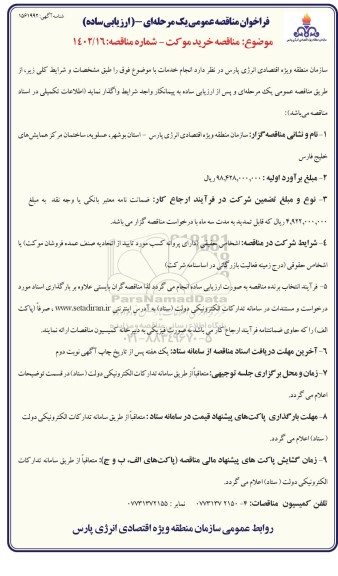 شناسه آگهی: ۱۵۶۱۹۹۲
فراخوان مناقصه عمومی یک مرحله‌ای -(ارزیابی ساده)
موضوع: مناقصه خرید موکت - شماره مناقصه: ۱۴۰۳/۱۶
سازمان منطقه ویژه اقتصادی انرژی پارس در نظر دارد انجام خدمات با موضوع فوق را طبق مشخصات و شرایط کلی زیر، از
طریق مناقصه عمومی یک مرحله‌ای و پس از ارزیابی ساده به پیمانکار واجد شرایط واگذار نماید (اطلاعات تکمیلی در اسناد
مناقصه می‌باشد):
۱- نام و نشانی مناقصه‌گزار: سازمان منطقه ویژه اقتصادی انرژی پارس - استان بوشهر، عسلویه، ساختمان مرکز همایش‌های
خلیج فارس
۲- مبلغ برآورد اولیه: ۹۸,۴۲۸,۰۰۰,۰۰۰ ریال
۳- نوع و مبلغ تضمین شرکت در فرآیند ارجاع کار: ضمانت نامه معتبر بانکی یا وجه نقد به مبلغ
۴,۹۲۲,۰۰۰,۰۰۰ ریال که قابل تمدید به مدت سه ماه با درخواست مناقصه گزار می باشد.
۴- شرایط شرکت در مناقصه: اشخاص حقیقی (دارای پروانه کسب مورد تایید از اتحادیه صنف عمده فروشان موکت) یا
اشخاص حقوقی (درج زمینه فعالیت بازرگانی در اساسنامه شرکت)
۵- فرآیند انتخاب برنده مناقصه به صورت ارزیابی ساده انجام می گردد لذا مناقصه‌گران بایستی علاوه بر بارگذاری اسناد مورد
درخواست و مستندات در سامانه تدارکات الکترونیکی دولت (ستاد) به آدرس اینترنتی www.setadiran.ir، صرفاً (پاکت
الف) را که حاوی ضمانتنامه فرآیند ارجاع کار می باشد به صورت فیزیکی به دبیرخانه کمیسیون مناقصات ارائه نمایند.
۶- آخرین مهلت دریافت اسناد مناقصه از سامانه ستاد: یک هفته پس از تاریخ چاپ آگهی نوبت دوم
۷- زمان و محل برگزاری جلسه توجیهی: متعاقباً از طریق سامانه تدارکات الکترونیکی دولت (ستاد) در قسمت توضیحات
اعلام می گردد.
۸- مهلت بارگذاری پاکت‌های پیشنهاد قیمت در سامانه ستاد: متعاقباً از طریق سامانه تدارکات الکترونیکی دولت
(ستاد) اعلام می گردد.
۹- زمان گشایش پاکت های پیشنهاد مالی مناقصه (پاکت‌های الف، ب و ج): متعاقباً از طریق سامانه تدارکات
الکترونیکی دولت (ستاد) اعلام می گردد.
تلفن کمیسیون مناقصات: ۴- ۰۷۷۳۱۳۷ ۲۱۵۰ نمابر: ۰۷۷۳۱۳۷۲۱۵۵
روابط عمومی سازمان منطقه ویژه اقتصادی انرژی پارس
ParsNamadData
۰۲۱-۸۸۳۴۹۶۷۰-۵